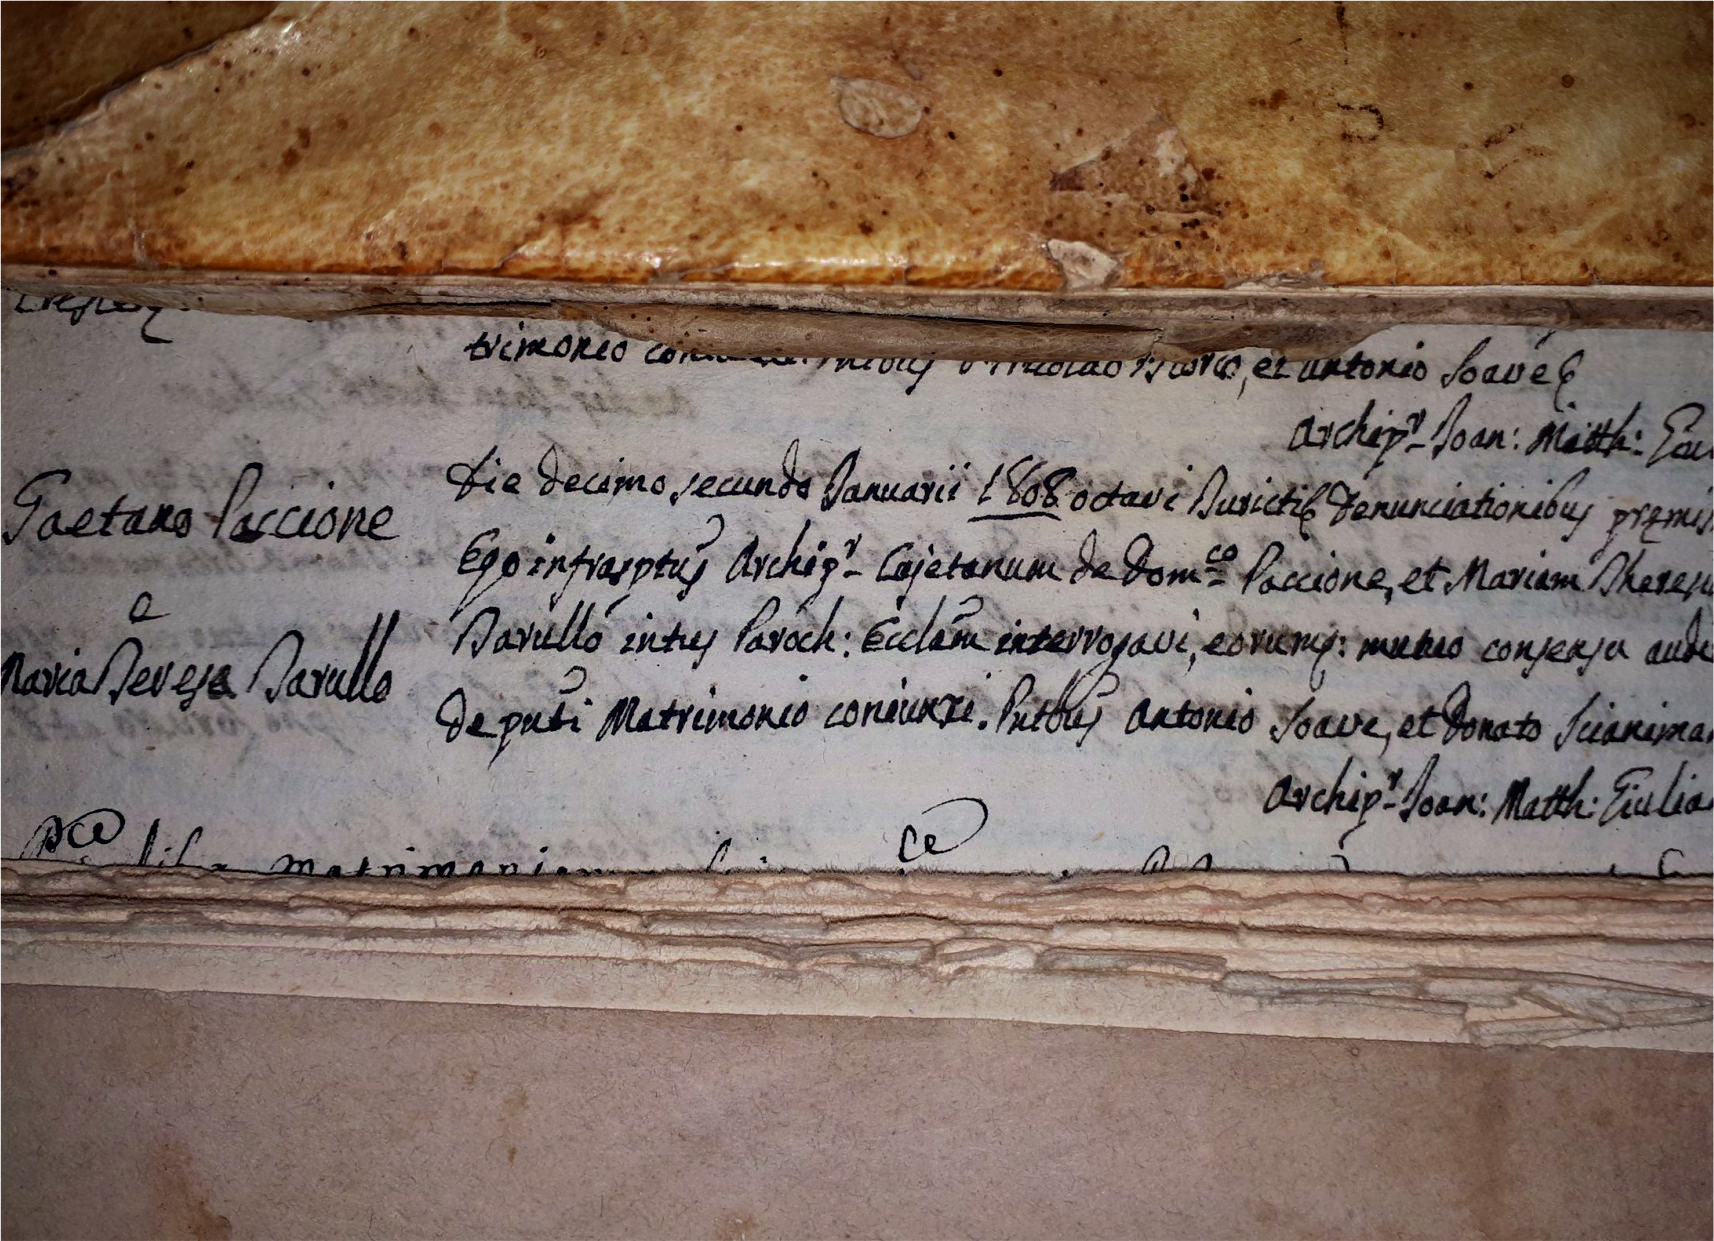 trimonio et antonio Soave
Archipr Joan: Matth:
Gaetano Paccione
e
Maria Teresa Tarullo
Die decimo secundo Januarii 1808 octavi Denunciationibus
Ego infrasptus Archipr Cajetanum de Domco Paccione, et Mariam
Tarullo intus Paroch: Ecclam interrogavi, eorumq: mutuo consensu
de pnti Matrimonio coniunxi. Pntbus Antonio Soave, et Donato
Archipr Joan: Matth: